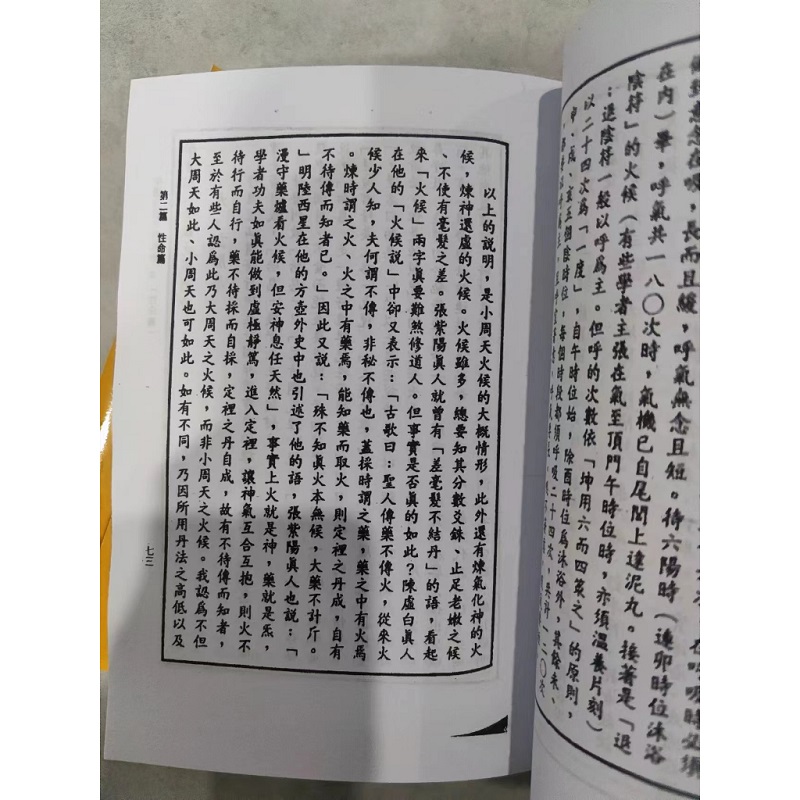 意念在吸，長而且緩，呼氣無念且短。待六陽時（連卯時位沐浴
在內）畢，呼氣共一八〇次時，氣機已自尾閭上達泥丸。接著是「退
陰符」的火候（有些學者主張在氣至頂門午時位時，亦須溫養片刻）
；退陰符一般以呼爲主。但呼的次數依「坤用六而四策之」的原則，
以二十四次爲「一度」，自午時位始，除酉時位爲沐浴外，其餘未、
申、戌、亥五個陰時位，每個時段都須呼吸二十四次，共計一二〇次
以上的說明，是小周天火候的大概情形，此外還有煉氣化神的火
候，煉神還虛的火候。火候雖多，總要知其分數爻銖、止足老嫩之候
、不使有毫髮之差。張紫陽眞人就曾有「差毫髮不結丹」的語，看起
來「火候」兩字眞要難煞修道人。但事實是否眞的如此？陳虛白眞人
在他的「火候說」中卻又表示：「古歌曰：聖人傳藥不傳火，從來火
候少人知，夫何謂不傳，非秘不傳也，蓋採時謂之藥，藥之中有火焉
。煉時謂之火、火之中有藥焉，能知藥而取火，則定裡之丹成，自有
不待傳而知者已。」因此又說：「殊不知眞火本無候，大藥不計斤。
」明陸西星在他的方壺外史中也引述了他的語，張紫陽眞人也說：「
漫守藥爐看火候，但安神息任天然」，事實上火就是神，藥就是炁，
學者功夫如眞能做到虛極靜篤，進入定裡，讓神氣互合互抱，則火不
待行而自行，藥不待採而自採，定裡之丹自成，故有不待傳而知者，
至於有些人認爲此乃大周天之火候，而非小周天之火候。我認爲不但
大周天如此、小周天也可如此。如有不同，乃因所用丹法之高低以及
第二篇　性命篇
七三